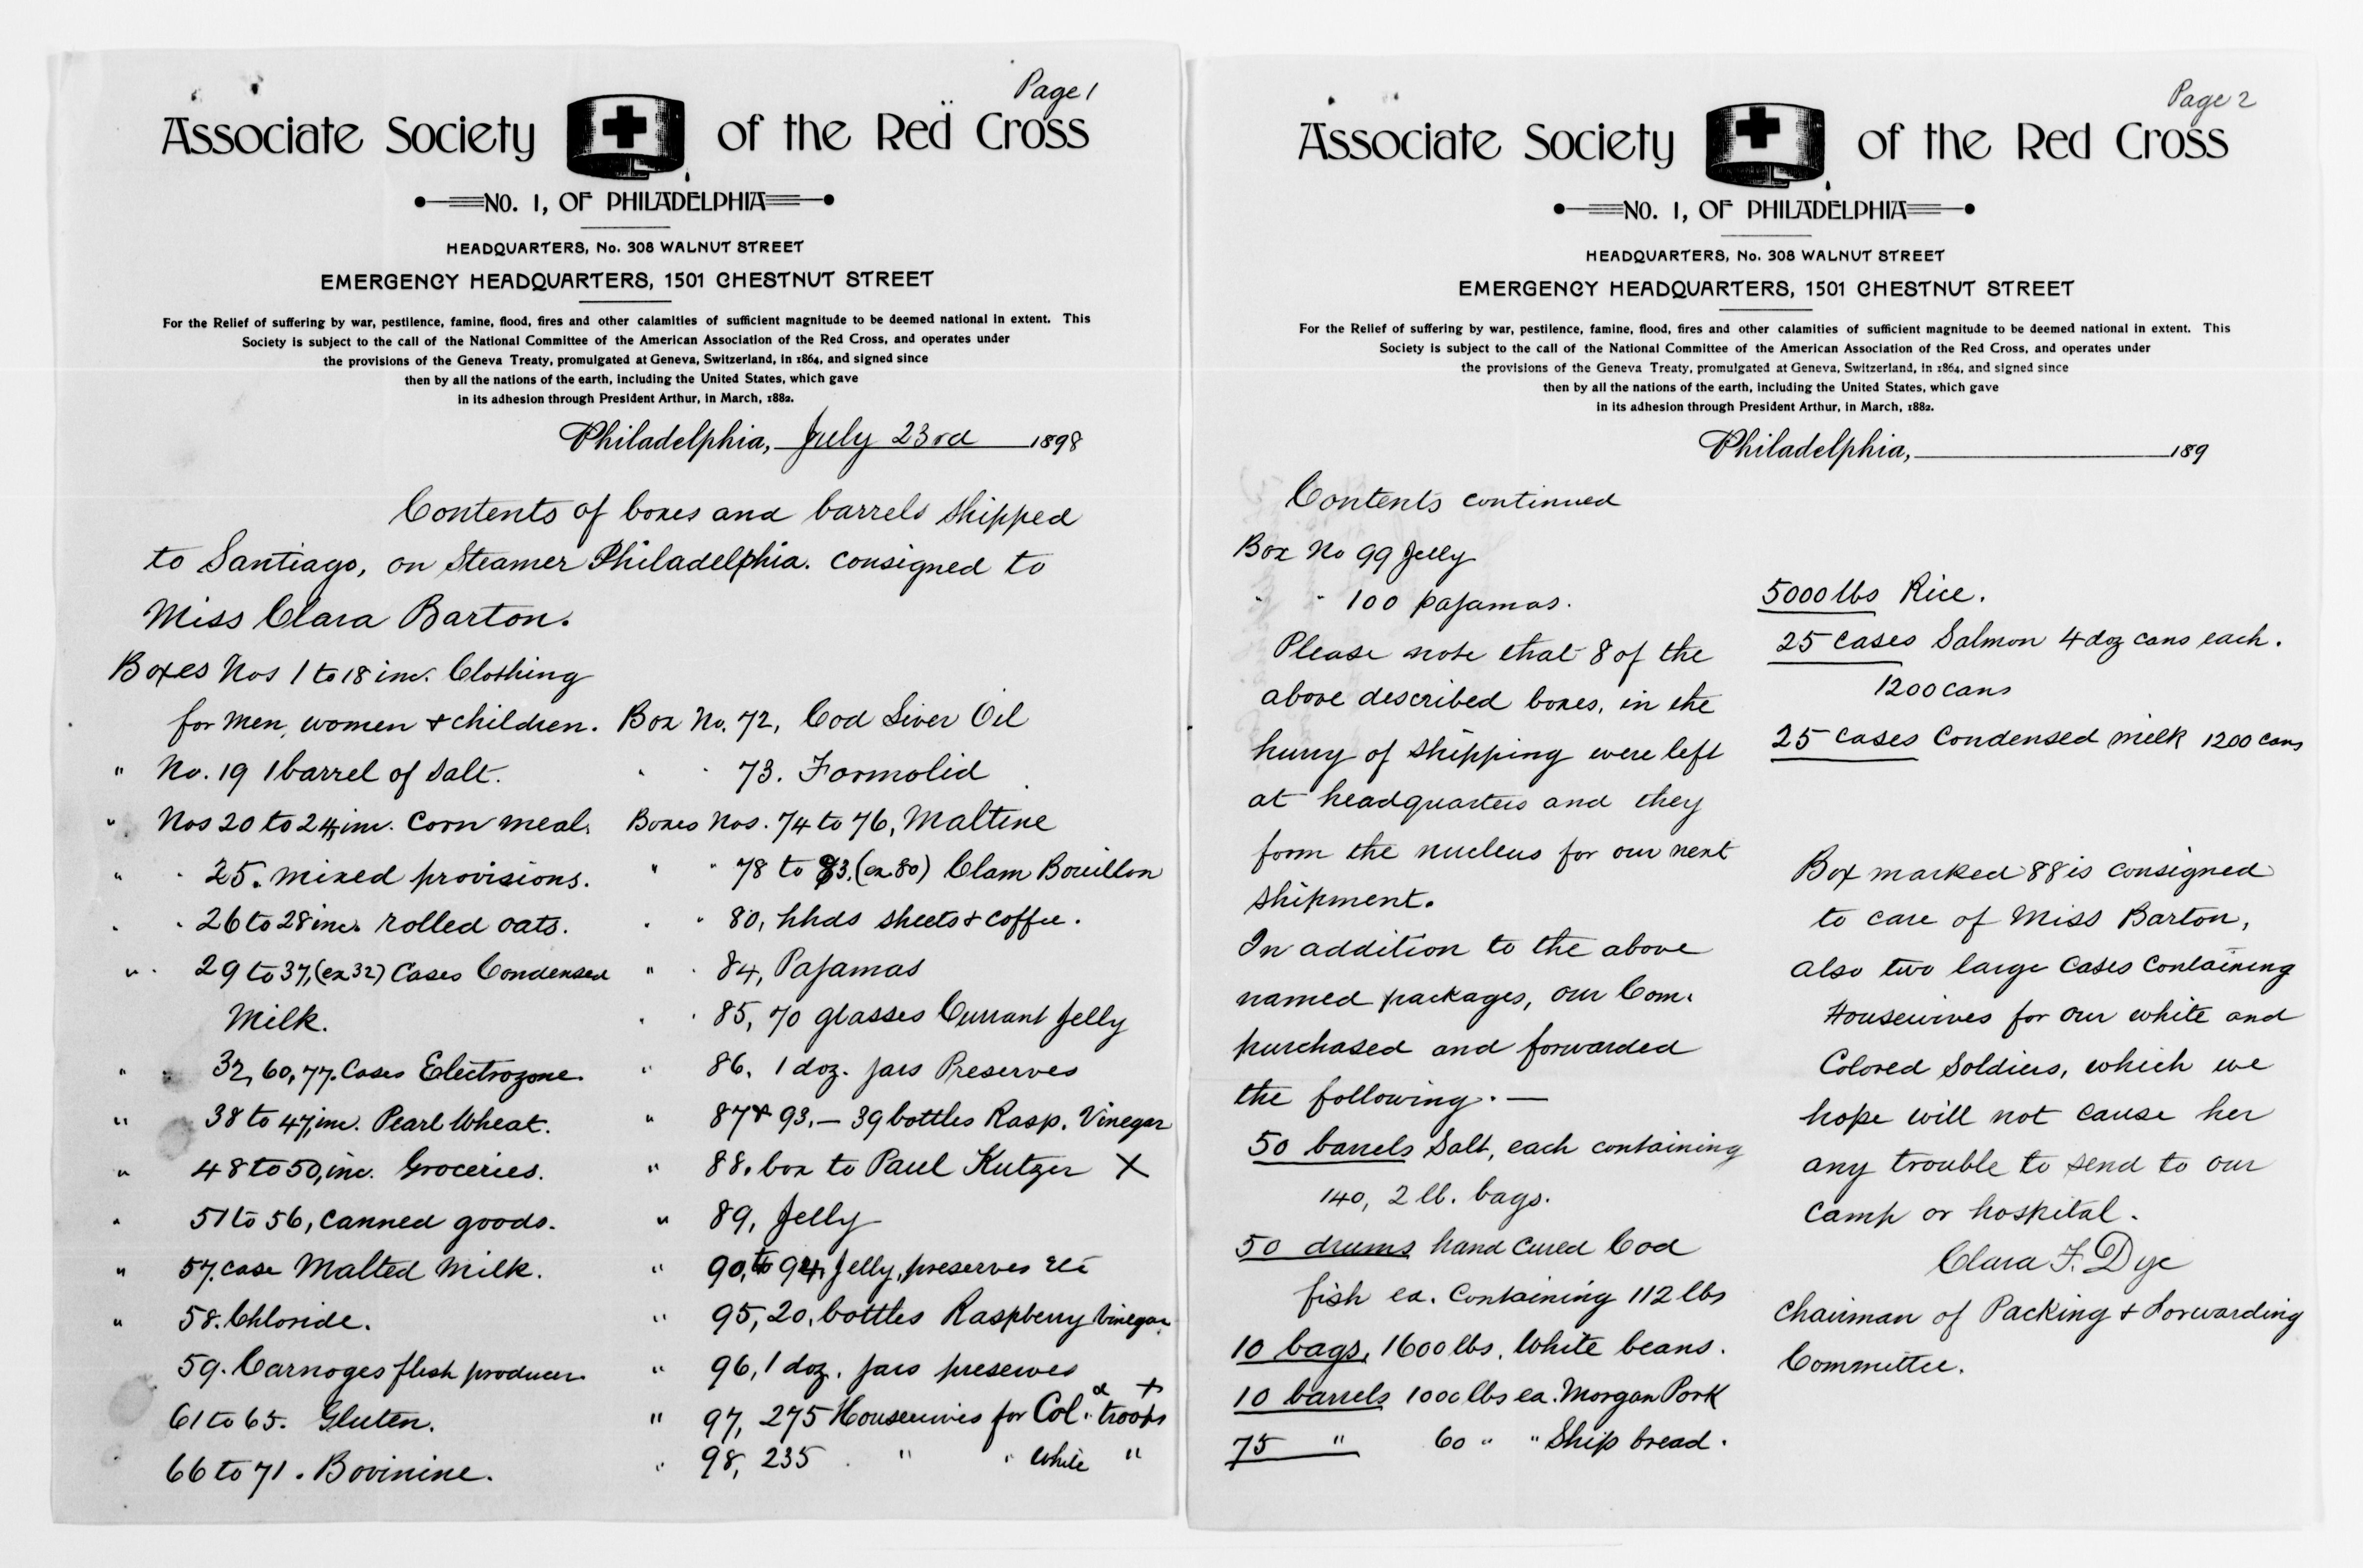 Page 1
Associate Society of the Red Cross
NO. 1, OF PHILADELPHIA
HEADQUARTERS, No. 308 WALNUT STREET
EMERGENCY HEADQUARTERS, 1501 CHESTNUT STREET
For the Relief of suffering by war, pestilence, famine, flood, fires and other calamities of sufficient magnitude to be deemed national in extent. This
Society is subject to the call of the National Committee of the American Association of the Red Cross, and operates under
the provisions of the Geneva Treaty, promulgated at Geneva, Switzerland, in 1864, and signed since
then by all the nations of the earth, including the United States, which gave
in its adhesion through President Arthur, in March, 1882.
Philadelphia, July 23rd 1898
Contents of boxes and barrels shipped
to Santiago, on Steamer Philadelphia. consigned to
Miss Clara Barton.
Boxes Nos 1 to 18 inc. Clothing
for men, women & children.
" No. 19 1 barrel of Salt.
" Nos 20 to 24, inc. Corn meal.
" " 25. mixed provisions.
" " 26 to 28 inc. rolled oats.
" " 29 to 37, (ex 32) Cases Condensed
Milk.
" " 32, 60, 77. Cases Electrozone.
" 38 to 47, inc. Pearl Wheat.
" 48 to 50, inc. Groceries.
" 51 to 56, canned goods.
" 57. case Malted Milk.
" 58. Chloride.
59. Carnoges flesh producer.
61 to 65. Gluten.
66 to 71. Bovinine.
Box No. 72, Cod Liver Oil
" " 73. Formolid
Boxes Nos. 74 to 76, Maltine
" " 78 to 83, (ex 80) Clam Bouillon
" " 80, hhds sheets & coffee.
" " 84, Pajamas
" " 85, 70 glasses Currant Jelly
" 86. 1 doz. jars Preserves
" 87 & 93. — 39 bottles Rasp. Vinegar
" 88. box to Paul Kutzer X
" 89, Jelly
" 90, to 94, Jelly, preserves etc
" 95, 20, bottles Raspberry Vinegar
" 96, 1 doz. jars preserves
" 97, 275 Housewives for Col.d troops +
" 98, 235 " " white "
Page 2
Associate Society of the Red Cross
NO. 1, OF PHILADELPHIA
HEADQUARTERS, No. 308 WALNUT STREET
EMERGENCY HEADQUARTERS, 1501 CHESTNUT STREET
For the Relief of suffering by war, pestilence, famine, flood, fires and other calamities of sufficient magnitude to be deemed national in extent. This
Society is subject to the call of the National Committee of the American Association of the Red Cross, and operates under
the provisions of the Geneva Treaty, promulgated at Geneva, Switzerland, in 1864, and signed since
then by all the nations of the earth, including the United States, which gave
in its adhesion through President Arthur, in March, 1882.
Philadelphia, 189
Contents continued
Box No 99 Jelly
" " 100 pajamas.
Please note that 8 of the
above described boxes, in the
hurry of shipping were left
at headquarters and they
form the nucleus for our next
shipment.
In addition to the above
named packages, our Com.
purchased and forwarded
the following. —
50 barrels Salt, each containing
140, 2 lb. bags.
50 drums hand cured Cod
fish ea. Containing 112 lbs
10 bags, 1600 lbs. White beans.
10 barrels 1000 lbs ea. Morgan Pork
75 " 60 " " Ship bread.
5000 lbs Rice.
25 cases Salmon 4 doz cans each.
1200 cans
25 cases Condensed milk 1200 cans
Box marked 88 is consigned
to care of Miss Barton,
also two large Cases Containing
Housewives for our white and
Colored Soldiers, which we
hope will not cause her
any trouble to send to our
camp or hospital.
Clara F. Dye
Chairman of Packing & Forwarding
Committee.